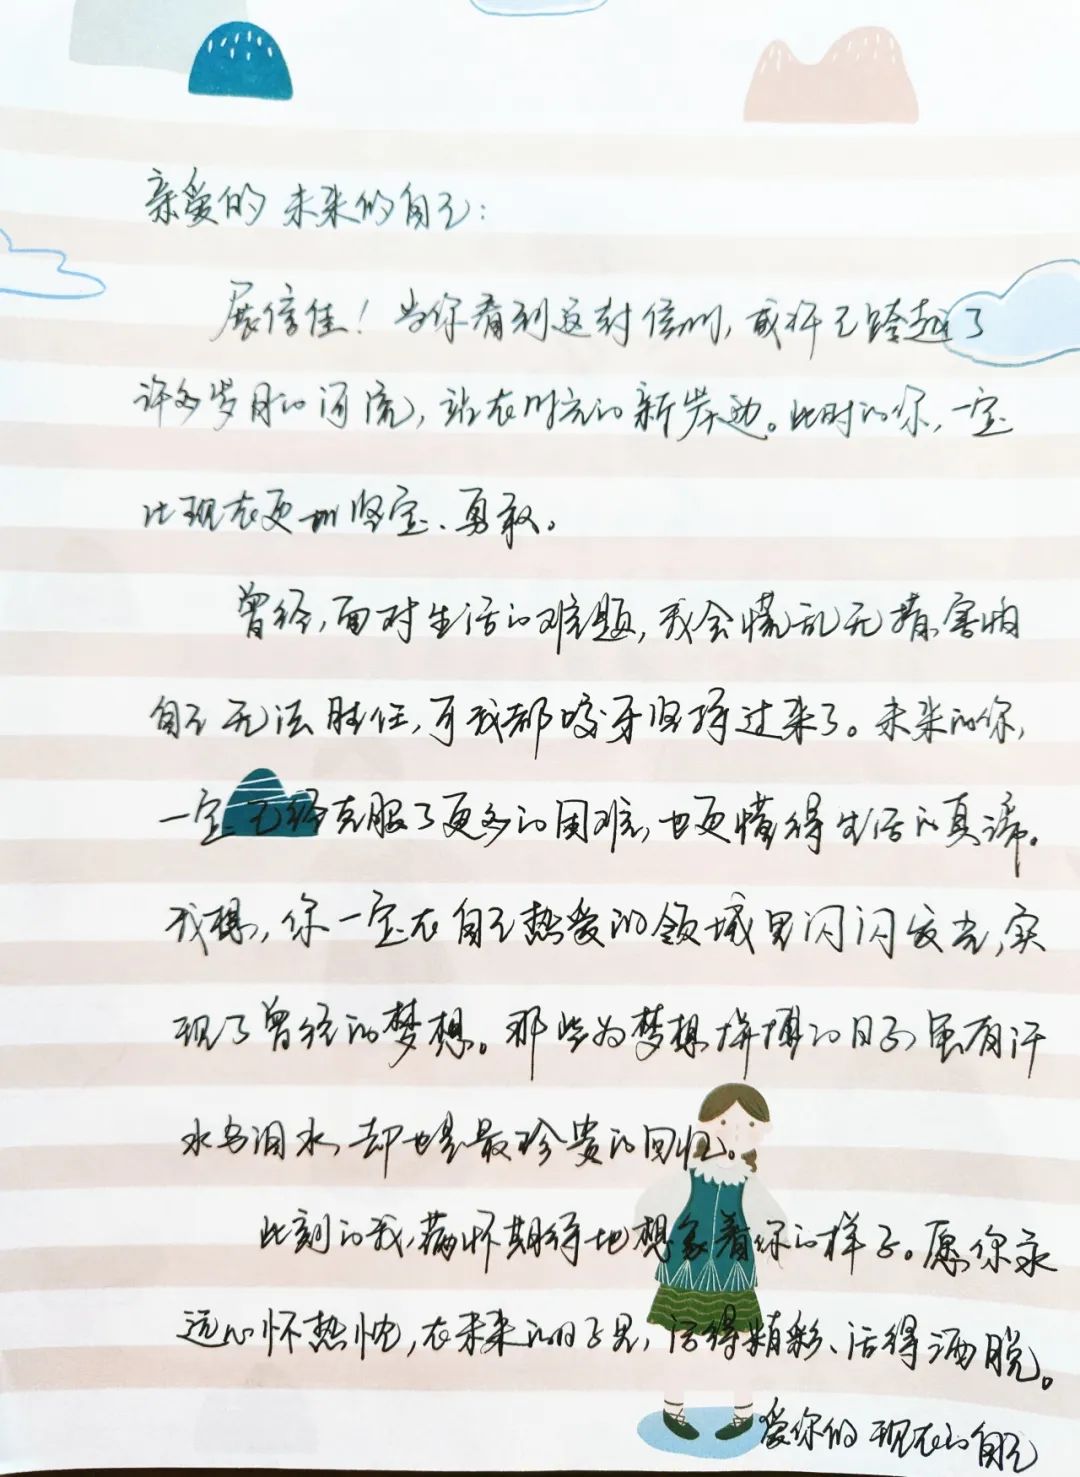 亲爱的 未来的自己：
展信佳！当你看到这封信时，或许已跨越了
许多岁月的河流，站在时光的新岸边。此时的你，一定
比现在更加坚定、勇敢。
曾经，面对生活的难题，我会慌乱无措，害怕
自己无法胜任，可我都咬牙坚持过来了。未来的你，
一定已经克服了更多的困难，也更懂得生活的真谛。
我想，你一定在自己热爱的领域里闪闪发光，实
现了曾经的梦想。那些为梦想拼搏的日子，虽有汗
水与泪水，却也是最珍贵的回忆。
此刻的我，满怀期待地想象着你的样子。愿你永
远心怀热忱，在未来的日子里，活得精彩、活得洒脱。
爱你的 现在的自己